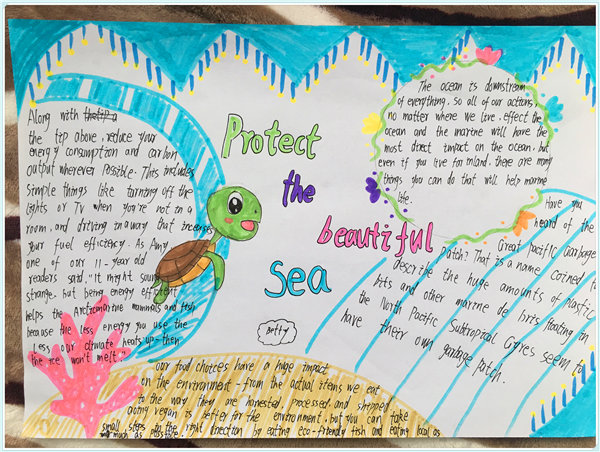 Along with the tip a
the tip above, reduce your
energy consumption and carbon
output wherever possible. This includes
simple things like turning off the
lights or TV when you're not in a
room and driving in a way that increases
your fuel efficiency. As Amy
one of our 11-year old
readers said, "It might sound
strange, but being energy efficient
helps the Arctic marine mammals and fish
because the less energy you use the
less our climate heats up—then
the ice won't melt."
Protect
the
beautiful
Sea
Betty
The ocean is downstream
of everything, so all of our actions,
no matter where we live, effect the
ocean and the marine will have the
most direct impact on the ocean, but
even if you live far inland, there are many
things you can do that will help marine
life.
Have you
heard of the
Great Pacific Garbage
patch? That is a name coined to
describe the huge amounts of plastic
bits and other marine de brits floating in
the North Pacific Subtropical Gyres seem to
have their own garbage patch.
Our food choices have a huge impact
on the environment-from the actual items we eat
to the way they are harvested, processed, and shipped.
Going vegan is better for the environment, but you can take
small steps in the right direction by eating eco-friendly fish and eating local as
much as possible.